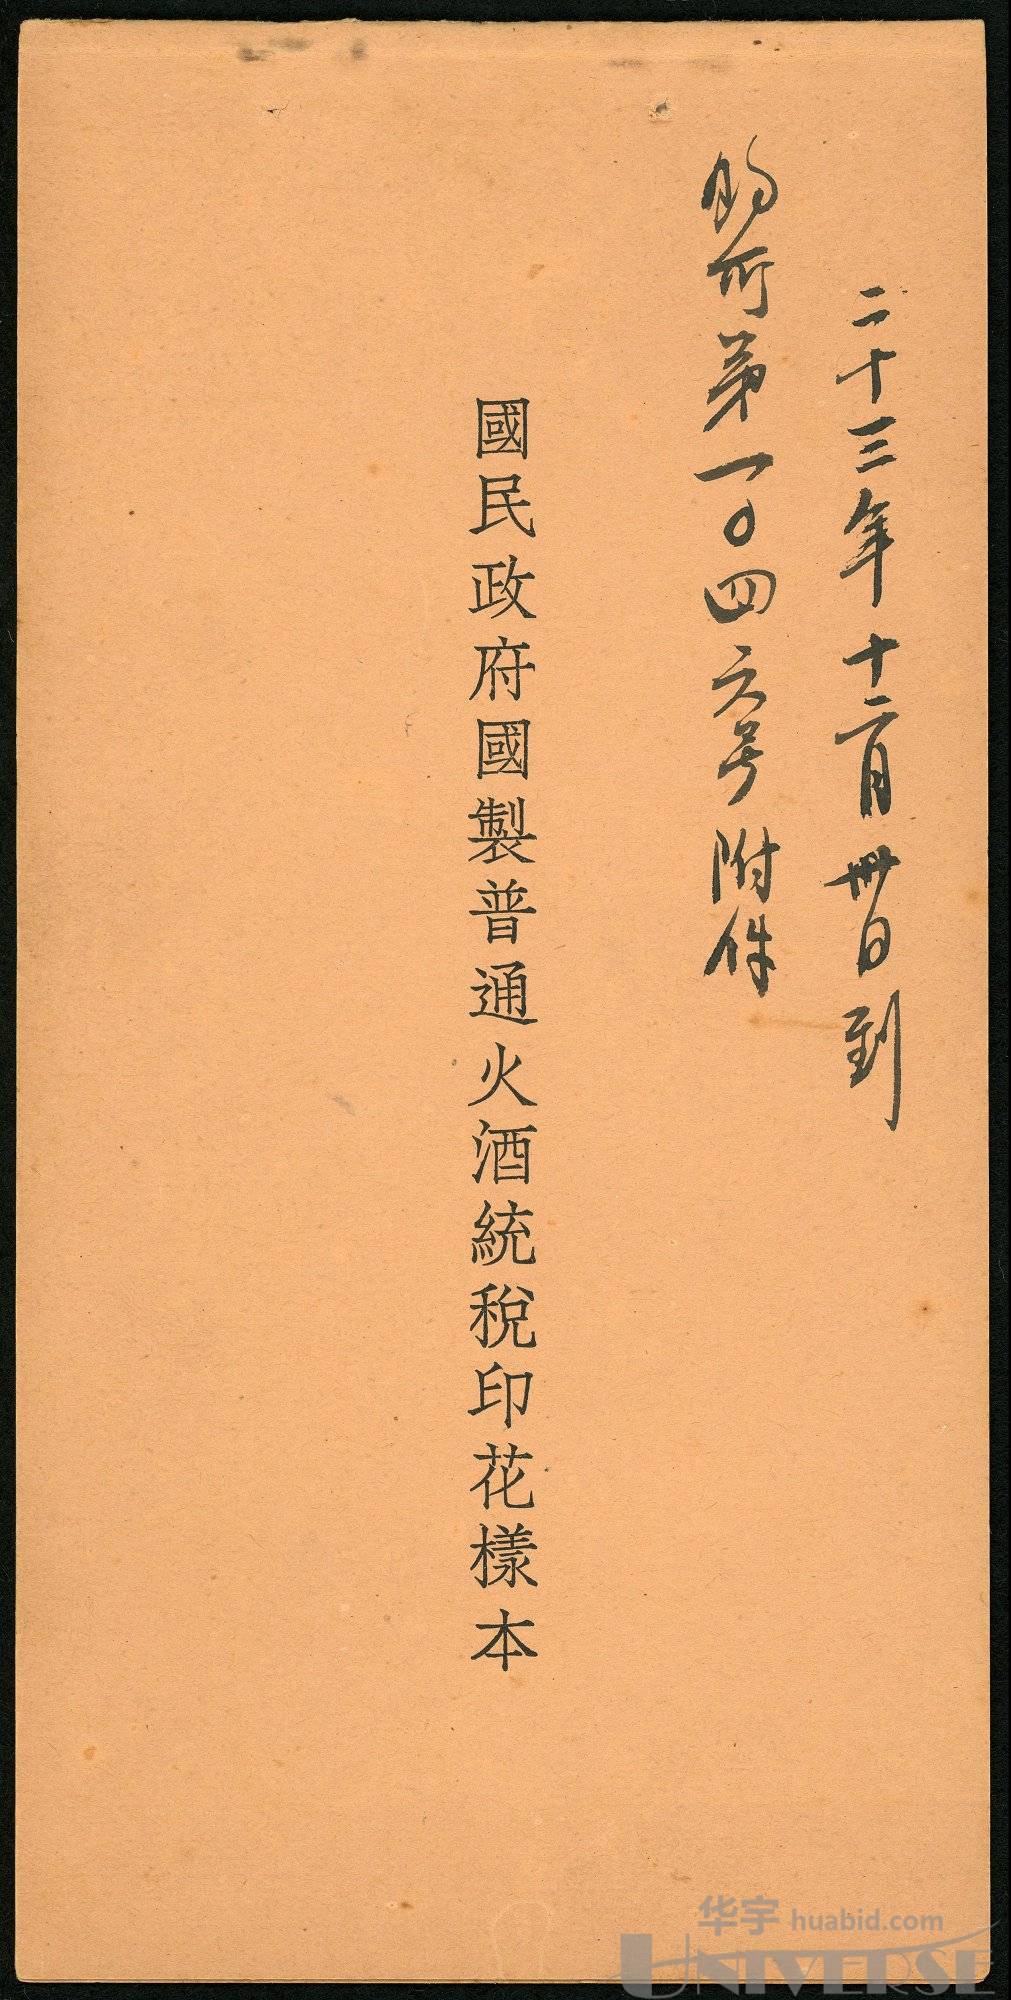 二十三年十二月卅日到
第一〇四六号附件
國民政府國製普通火酒統稅印花樣本
华宇 huabid.com
UNIVERSE